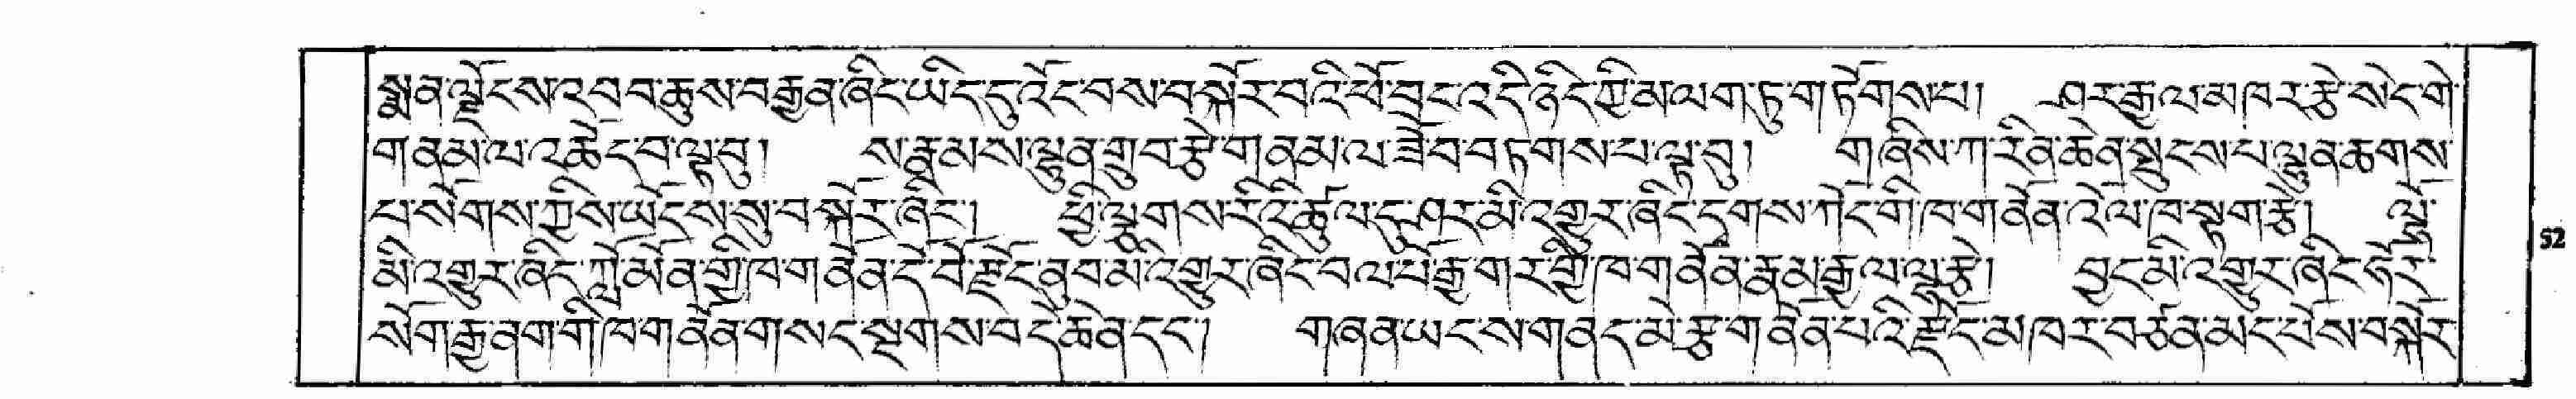 སྨན་ལྗོངས་འབབ་ཆུས་བརྒྱན་ཞིང་ཡིད་དུ་འོང་བས་བསྐོར་བའི་ཕོ་བྲང་འདི་ཉིད་ཀྱི་མ་ལག་ཏུ་གཏོགས་པ། ཤར་རྒྱལ་མཁར་རྩེ་སེང་གེ་
གནམ་ལ་འཆོང་བ་ལྟ་བུ། ས་རྣམས་ལྷུན་གྲུབ་རྩེ་གནམ་ལ་ཟོབ་བཏགས་པ་ལྟ་བུ། གཞིས་ཀ་རིན་ཆེན་སྤུངས་པ་ལྷུན་ཆགས་
པ་སོགས་ཀྱིས་ཡོངས་སུ་བསྐོར་ཞིང་། ཕྱི་ལྕགས་རིའི་ཚུལ་དུ་ཤར་མི་འགྱུར་ཞིང་དྭགས་ཀོང་གི་ཁ་གནོན་འོལ་ཁ་སྟག་རྩེ། ལྷོ་
མི་འགྱུར་ཞིང་ཀློ་མོན་གྱི་ཁ་གནོན་དོ་བོ་རྫོང་ནུབ་མི་འགྱུར་ཞིང་བལ་པོ་རྒྱ་གར་གྱི་ཁ་གནོན་རྣམ་རྒྱལ་ལྷ་རྩེ། བྱང་མི་འགྱུར་ཞིང་ཧོར་
སོག་རྒྱ་ནག་གི་ཁ་གནོན་གསང་སྔགས་བདེ་ཆེན་དང་། གཞན་ཡང་ས་གནད་མེ་རྩྭ་གནོན་པའི་རྫོང་མཁར་བཙན་མང་པོས་བསྐོར་
52